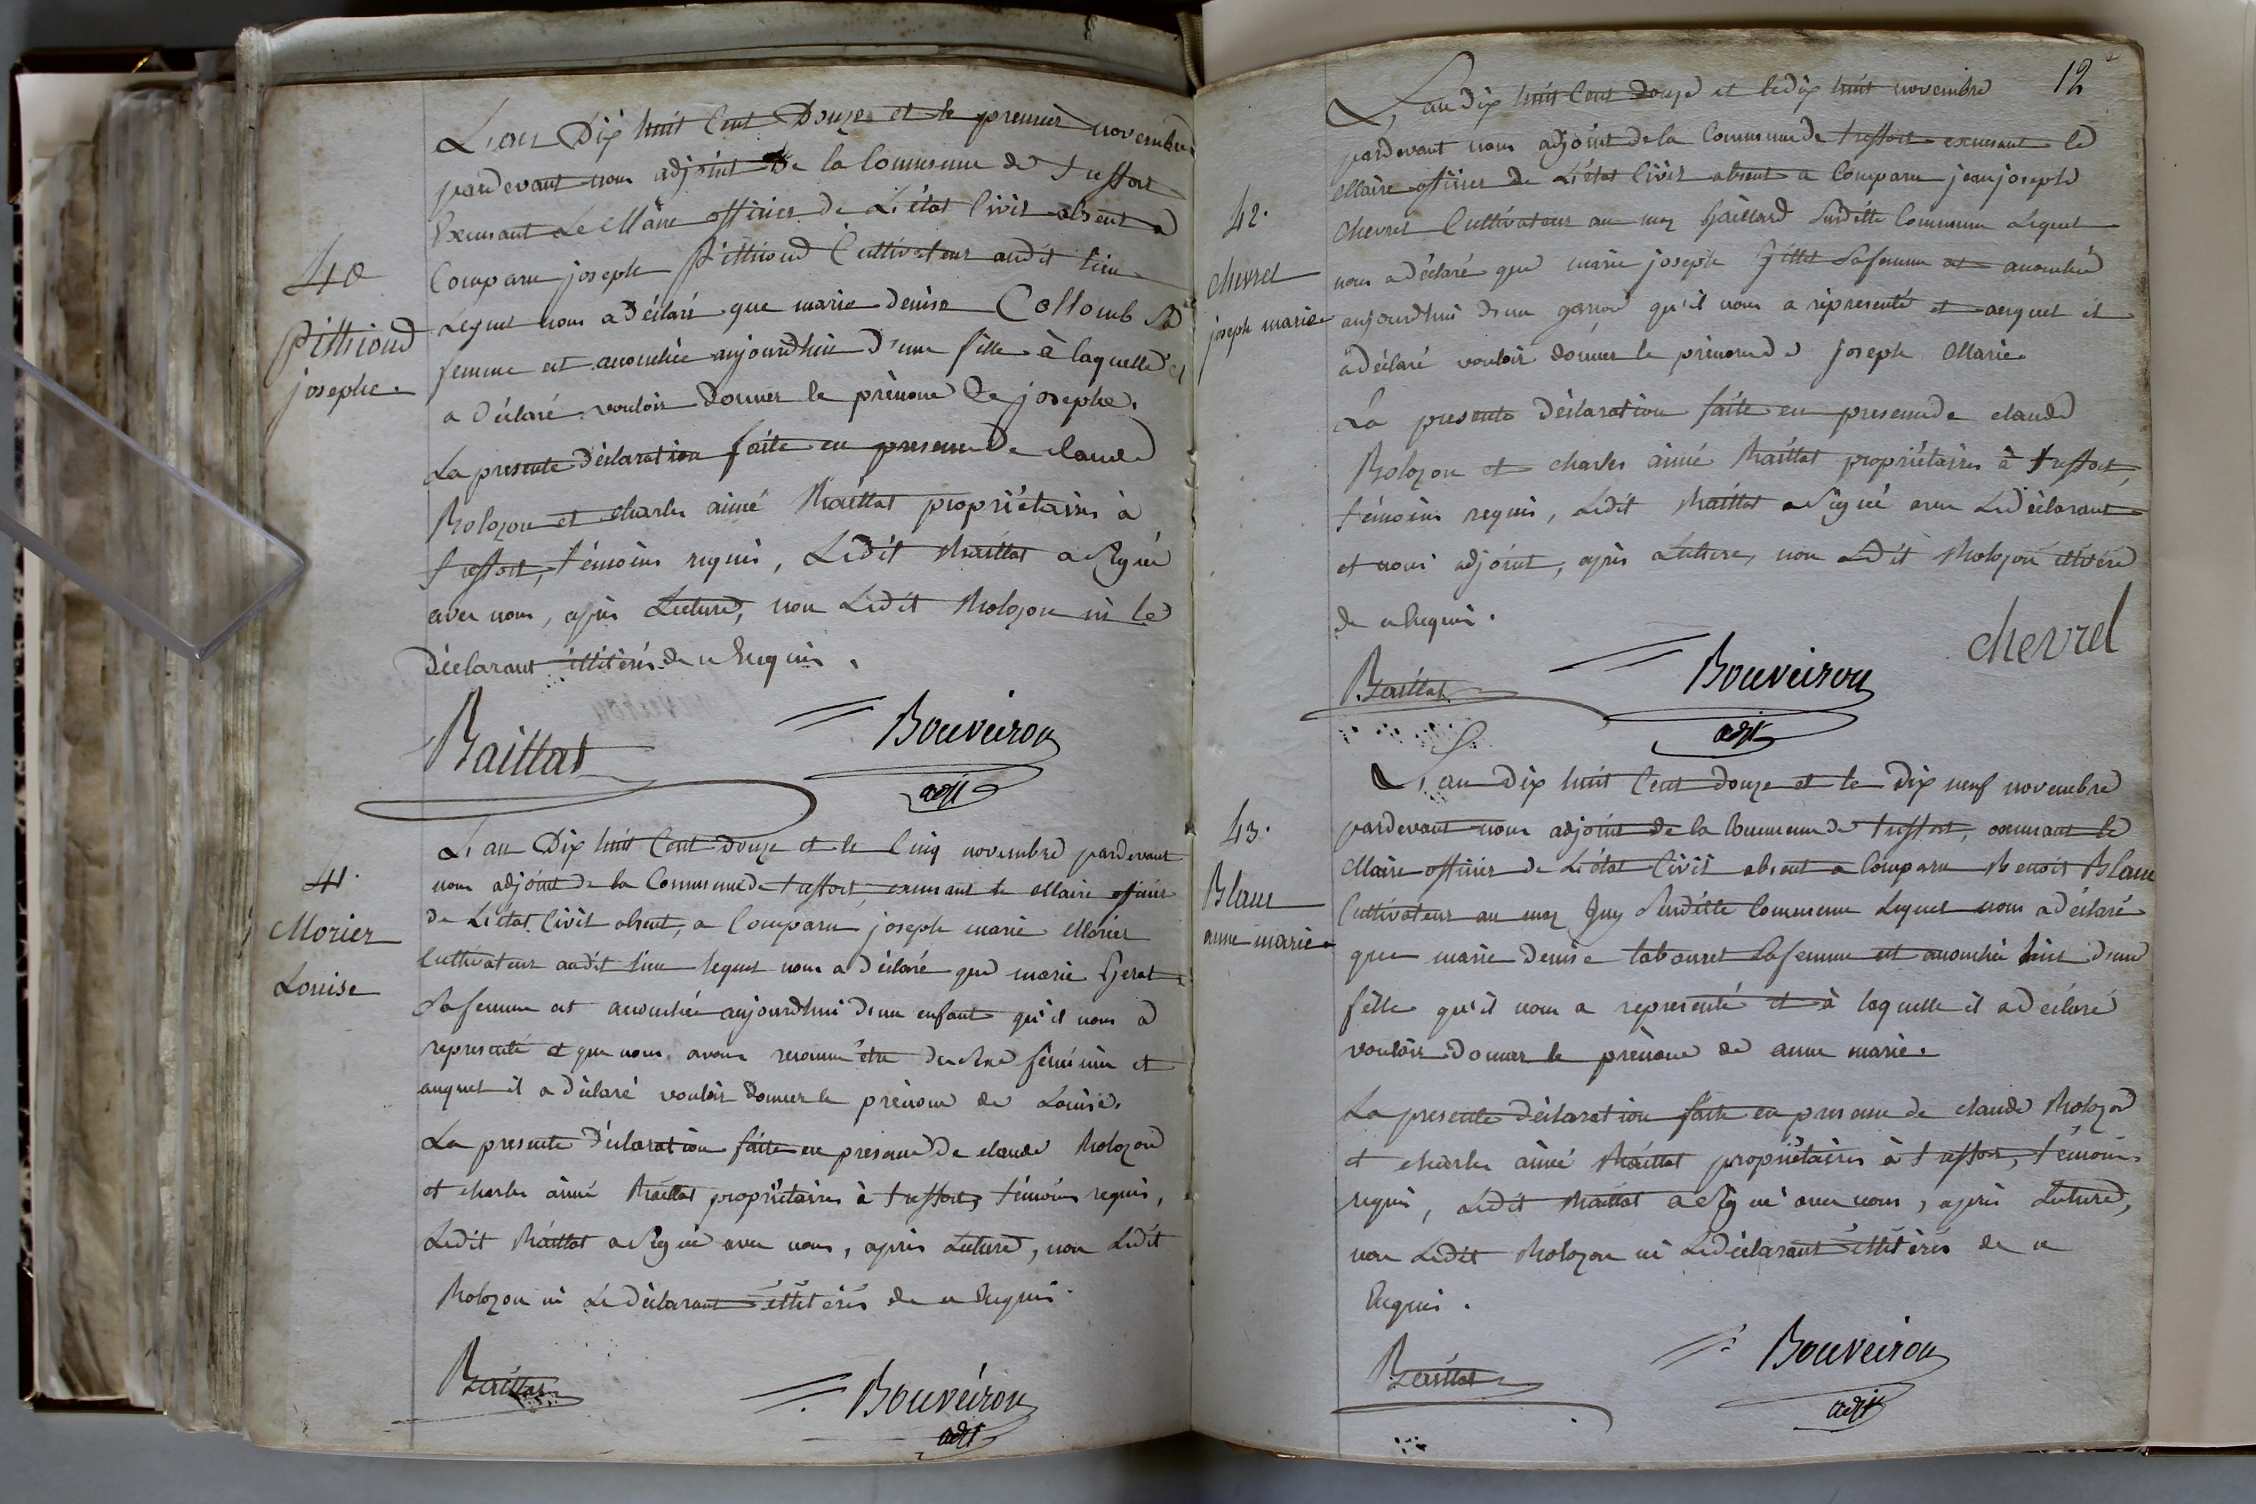 L'an Dix huit Cent Douze et le premier novembre
pardevant nous adjoint De la Commune de treffort
Excusant Le Maire officier de L'état Civil absent a
Comparu joseph Pithioud Cultivateur audit lieu
Lequel nous a déclaré que marie denise Collomb Sa
femme est accouchée aujourdhui d'une fille à laquelle il
a Déclaré vouloir donner le prénom De josephe.
La presente déclaration faite en presence De claude
Bolozon et charles aimé Baillat propriétaires à
treffort, témoins requis, Ledit Baillat a Signé
avec nous, après Lecture, non Ledit Bolozon ni le
Déclarant illitérés de ce Enquis.
40
Pithioud
josephe.
Baillat
Bouveiron
adjt
L'an Dix huit Cent Douze et le Cinq novembre pardevant
nous adjoint de la Commune de treffort, excusant le Maire officier
de L'état Civil absent, a Comparu joseph marie Morier
Cultivateur audit lieu lequel nous a déclaré que marie Gerat
Sa femme est accouchée aujourdhui d'un enfant qu'il nous a
representé et que nous avons reconnu être du Sexe féminin et
auquel il a déclaré vouloir donner le prénom de Louise.
La presente Déclaration faite en presence De claude Bolozon
et charles aimé Baillat propriétaires à treffort, témoins requis,
Ledit Baillat a Signé avec nous, après Lecture, non Ledit
Bolozon ni Le déclarant illitérés de ce Enquis.
41.
Morier
Louise
Baillat
Bouveiron
adjt
12
L'an dix huit Cent douze et le dix huit novembre
pardevant nous adjoint de la Commune de treffort excusant le
Maire officier de L'état Civil absent a Comparu jean joseph
Chevrel Cultivateur au mas Gaillard Susditte Commune Lequel
nous a déclaré que marie joseph Sa femme est accouchée
aujourdhui d'un garçon qu'il nous a représenté et auquel il
a déclaré vouloir donner le prénom de joseph Marie.
La presente Déclaration faite en presence de claude
Bolozon et charles aimé Baillat propriétaires à treffort,
témoins requis, Ledit Baillat a Signé avec Le déclarant
et nous adjoint, après Lecture, non Ledit Bolozon illitéré
de ce Enquis.
42.
chevrel
joseph marie.
chevrel
Baillat
Bouveiron
adjt
L'an Dix huit Cent douze et le Dix neuf novembre
pardevant nous adjoint de la Commune de treffort, excusant le
Maire officier de L'état Civil absent a Comparu Benoit Blanc
Cultivateur au mas Susditte Commune Lequel nous a déclaré
que marie denise tabouret Sa femme est accouchée hier d'une
fille qu'il nous a representé et à laquelle il a déclaré
vouloir Donner le prénom de anne marie.
La presente déclaration faite en presence de claude Bolozon
et charles aimé Baillat propriétaires à treffort, témoins
requis, Ledit Baillat a Signé avec nous, après Lecture,
non Ledit Bolozon ni Le déclarant illitérés de ce
Enquis.
43.
Blanc
anne marie.
Baillat
Bouveiron
adjt